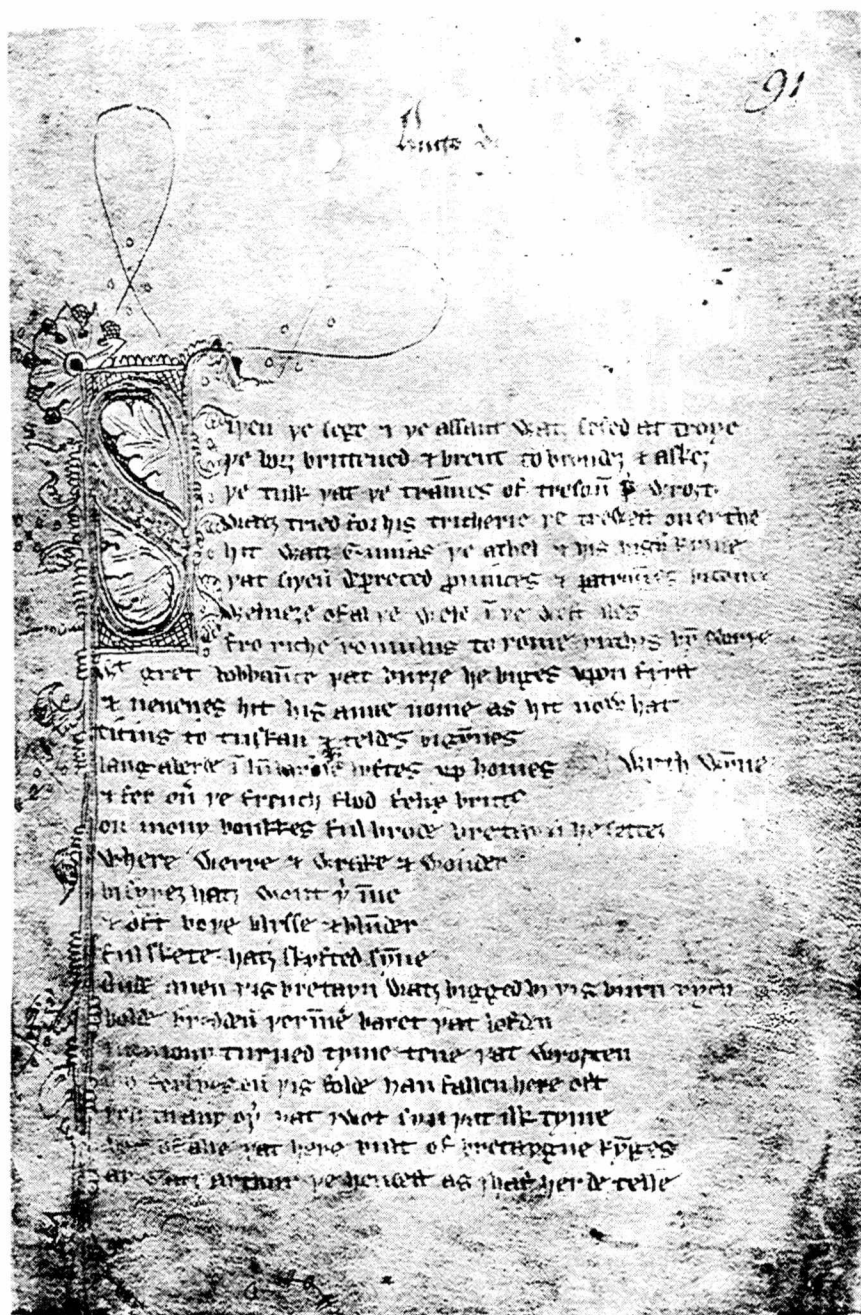 91
Siþen þe sege & þe assaut watz sesed at troye
þe borȝ brittened & brent to brondeȝ & askez
þe tulk þat þe trāmes of tresoū þ wroȝt
watz tried for his tricherie þe trewest on erthe
hit watz Ennias þe athel & his highe kynde
þat siþen depreced prouinces & patrounes bicome
welneȝe of al þe wele ī þe west iles
fro riche romulus to rome ricchis hȳ swyþe
gret bobbaūce þat burȝe he biges vpon fyrst
& neuenes hit his aune nome as hit now hat
ticius to tuskan & teldes bigȳnes
langaberde ī lūbardie lyftes vp homes
& fer ouer þe french flod felix brutus
on mony bonkkes ful brode bretayn he settez
wyth wȳne
where werre & wrake & wonder
bi syþez hatz wont þ īne
& oft boþe blysse & blūder
ful skete hatz skyfted sȳne
Ande quen þis bretayn watz bigged bi þis burn rych
bolde bredden þerīne baret þat lofden
in mony turned tyme tene þat wroȝten
mo ferlyes on þis folde han fallen here oft
þen in any oþ þat I wot syn þat ilk tyme
bot of alle þat here bult of bretaygne kȳges
ay watz arthur þe hendest as I haf herde telle